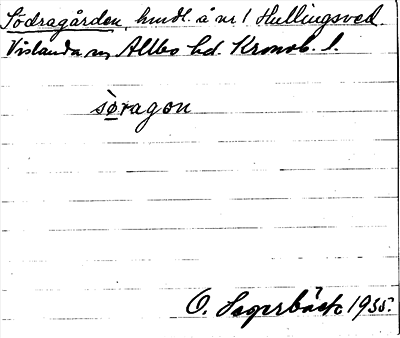 Södragården, hmdl. å nr 1 Hullingsved.
Vislanda sn Allbo hd. Kronob. l.
sǿragon
O. Sagerbäck 1935.